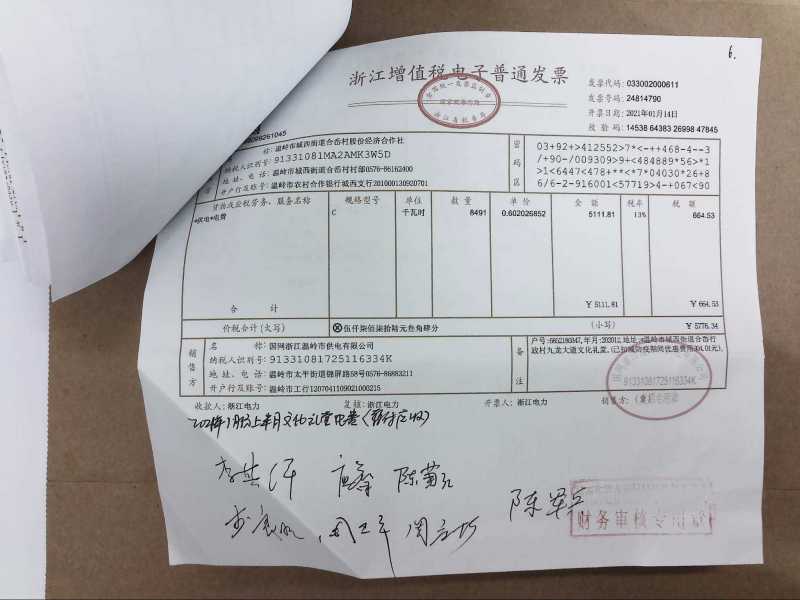 6.
浙江增值税电子普通发票
发票代码: 033002000611
发票号码: 24814790
开票日期: 2021年01月14日
校验码: 14538 64383 26998 47845
称: 温岭市城西街道合岙村股份经济合作社
纳税人识别号: 91331081MA2AMK3W5D
地址、电话: 温岭市城西街道合岙村村部0576-86162400
开户行及账号: 温岭市农村合作银行城西支行201000130920701
密码区
03+92+>412552>7*<-++468-4--3
/+90-/009309>9+<484889*56>*1
>1<6447<478+**<*7*04030*26+8
6/6-2-916001<57719>4-+067<90
货物或应税劳务、服务名称 规格型号 单位 数量 单价 金额 税率 税额
*供电*电费 C 千瓦时 8491 0.602026852 5111.81 13% 664.53
合计 ¥5111.81 ¥664.53
价税合计(大写) ⊗伍仟柒佰柒拾陆元叁角肆分 (小写) ¥5776.34
销售方
名称: 国网浙江温岭市供电有限公司
纳税人识别号: 91331081725116334K
地址、电话: 温岭市太平街道锦屏路58号0576-86883211
开户行及账号: 温岭市工行1207041109021000215
备注
政村九龙大道文化礼堂,
收款人: 浙江电力 复核: 浙江电力 开票人: 浙江电力 销售方:
91331081725116334K
2021年1月份上半月文化礼堂电费
陈军兵
财务审核专用章